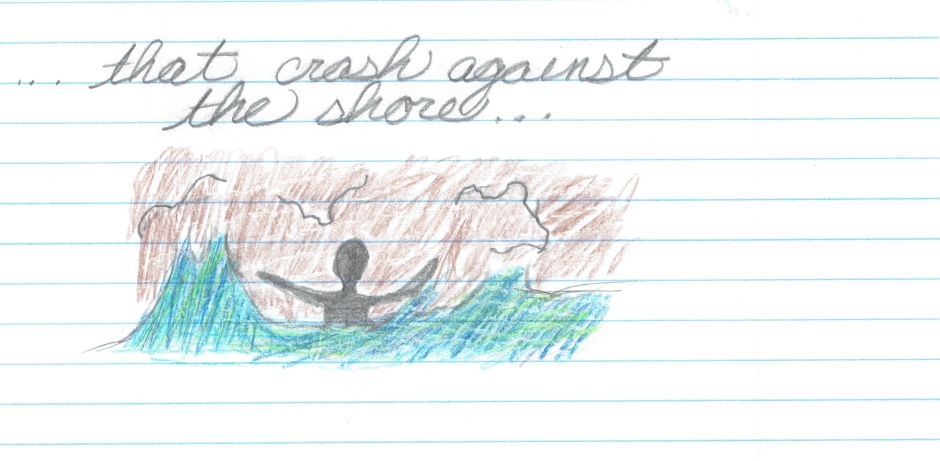 ... that crash against
the shore...